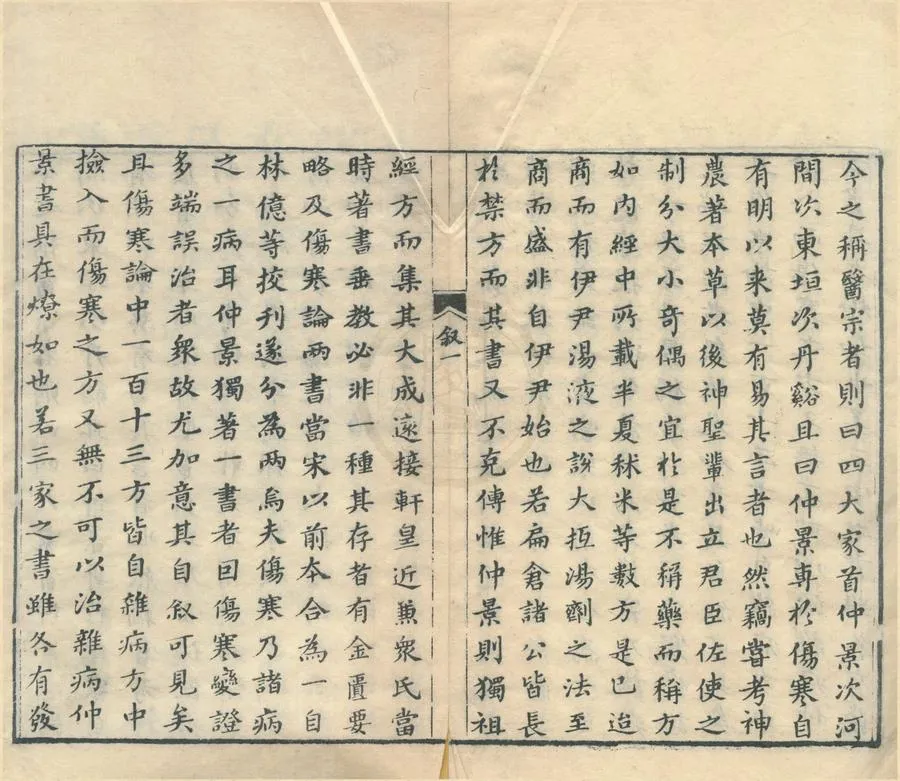 今之稱醫宗者則曰四大家首仲景次河
間次東垣次丹谿且曰仲景專於傷寒自
有明以來莫有易其言者也然竊嘗考神
農著本草以後神聖輩出立君臣佐使之
制分大小奇偶之宜於是不稱藥而稱方
如內經中所載半夏秫米等數方是已迨
商而有伊尹湯液之說大抵湯劑之法至
商而盛非自伊尹始也若扁倉諸公皆長
於禁方而其書又不克傳惟仲景則獨祖
叙一
經方而集其大成遠接軒皇近兼衆氏當
時著書垂教必非一種其存者有金匱要
略及傷寒論兩書當宋以前本合為一自
林億等挍刊遂分為兩焉夫傷寒乃諸病
之一病耳仲景獨著一書者因傷寒變證
多端誤治者衆故尤加意其自叙可見矣
且傷寒論中一百十三方皆自雜病方中
撿入而傷寒之方又無不可以治雜病仲
景書具在燎如也若三家之書雖各有發